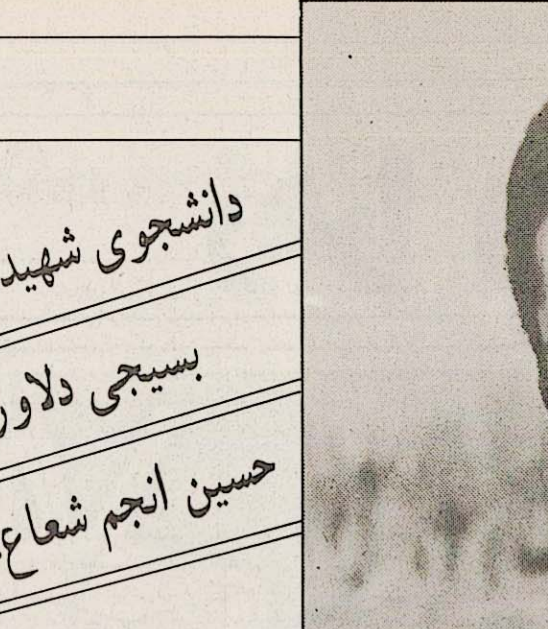 دانشجوی شهید
بسیجی دلاور
حسین انجم شعاع